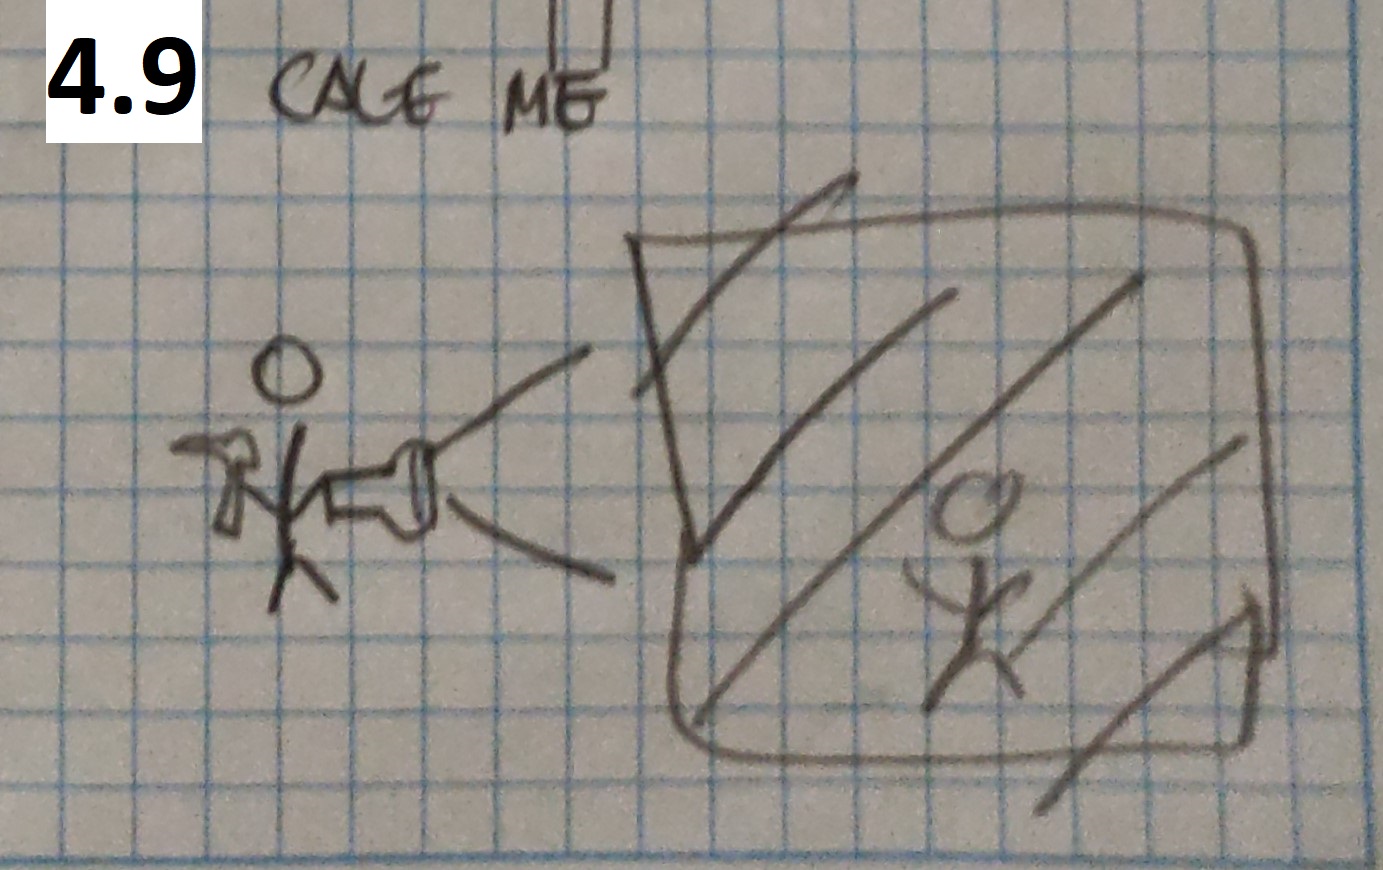 4.9 CAGE ME